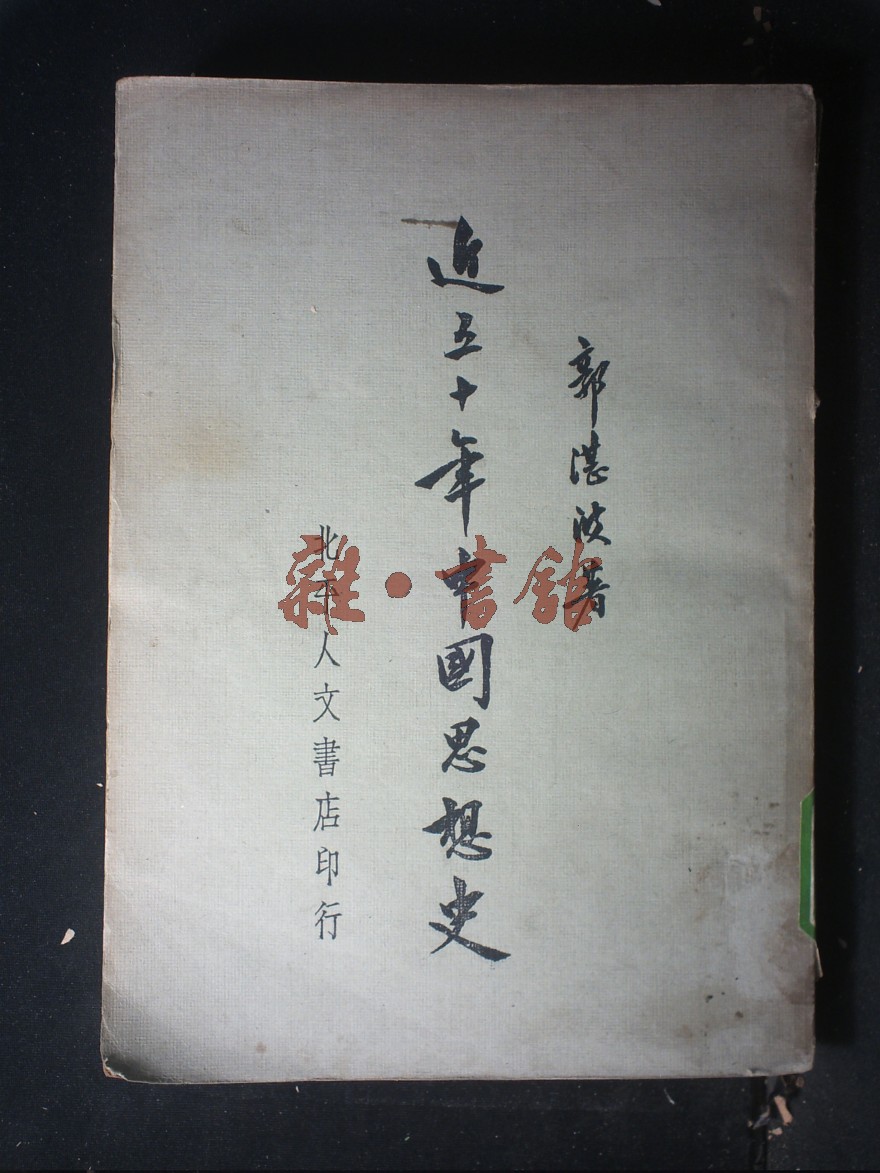 郭湛波著
近五十年中國思想史
北平人文書店印行
雜·書館